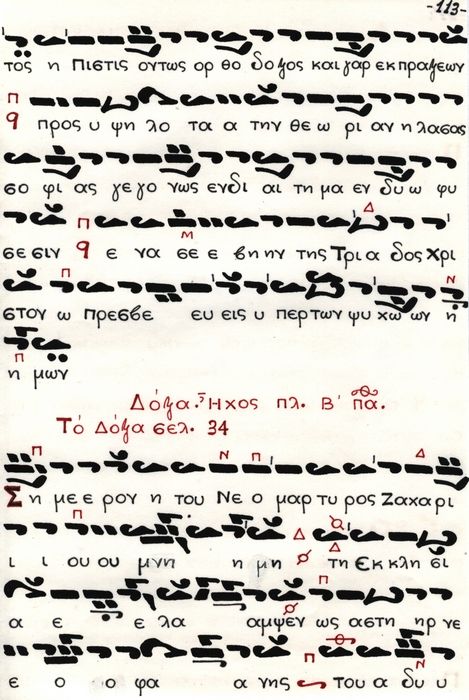 -113-
τος η Πιστις ουτως ορ θο δοξος και γαρ εκ πραξεων
π
q προς υ ψη λο τα α την θε ω ρι αν η λασας
σο φι ας γε γο νως ενδι αι τη μα εν δυ ω φυ
Π Δ
σε σιν q ε να σε ε βη ην της Τρι α δος χρι
Μ
Π Ν
στον ω πρεσβε ευ εις υ περ των ψυ χω ων η
Π
η μων
Δόξα. Ἦχος πλ. Β' πα.
Τό Δόξα σελ. 34
Π Ν Π Δ
Ση με ε ρον η του Νε ο μαρ τυ ρος Ζαχαρι
Π Δ
ι ι ου ου μνη η μη Δ τη Εκ κλη σι
Π
α ε ε λα αμψεν ως αστη ηρ νε
Π Ν
ε ο ο φα α νης του α δυ υ